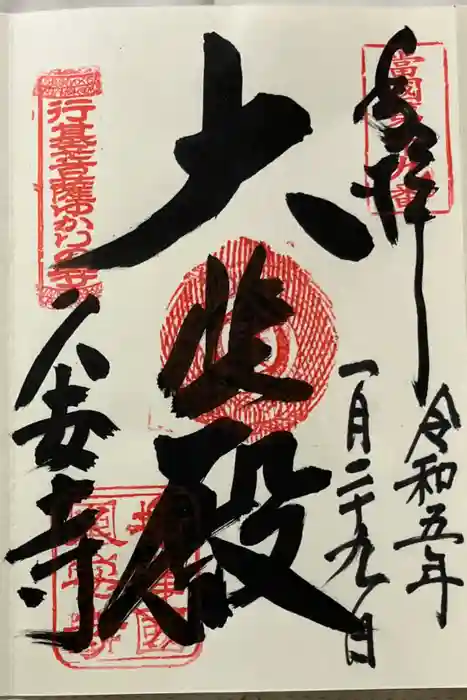 奉拝
令和五年
一月二十九日
大悲殿
行基菩薩ゆかりの寺
久安寺